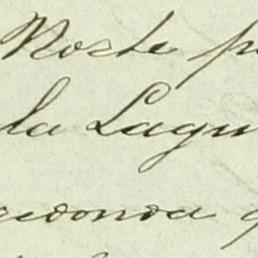 Norte p
la Lagu
redonda q